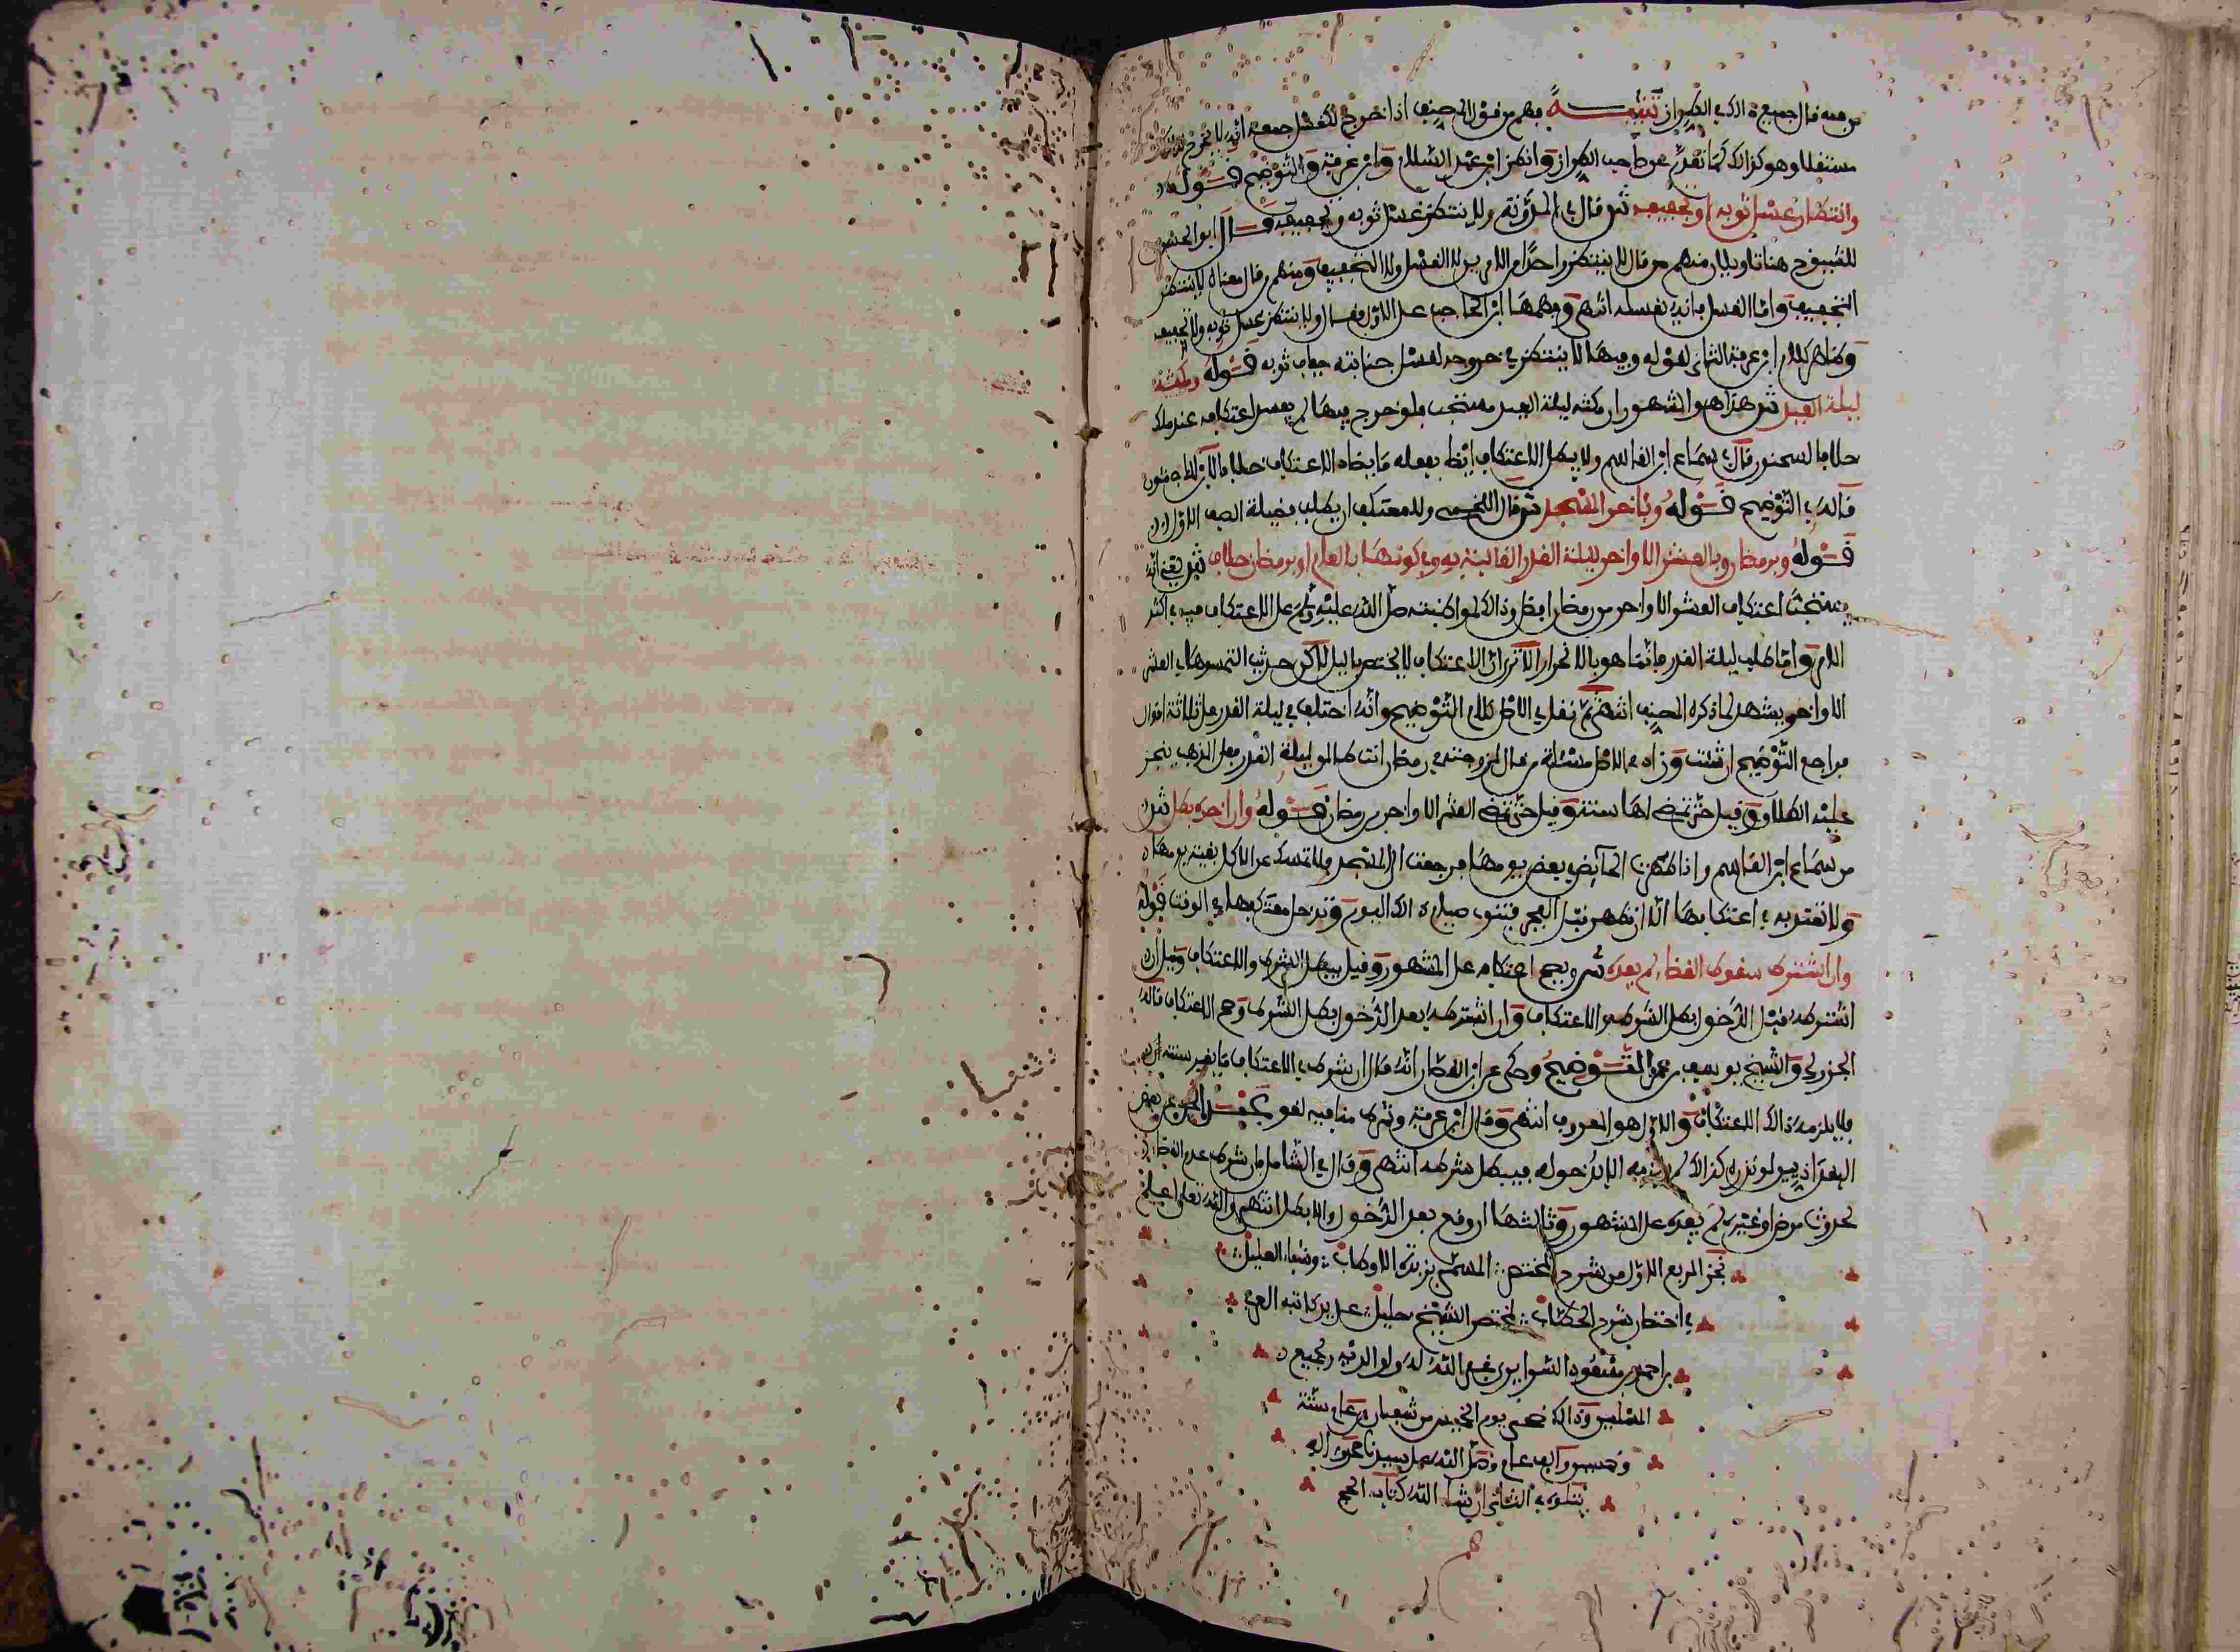 من معه قال جميع ذلك في الطراز تنبيـــه فهم من قول المصنف اذا خرج لكغسل جمعة انه لا يخرج
مستقلا وهو كذالك كما تقدم عن صاحب الطراز وانظر ابن عبد السلام وابن عرفة والتوضيح قـــوله
وانتظار غسل ثوبه او تجفيفه ش قال في المدونة ولا ينتظر غسل ثوبه وتجفيفه قـــال ابو الحسن
للشيوخ هنا تاويلان منهم من قال لا ينتظر واحدا من الامرين لا الغسل ولا التجفيف ومنهم من قال معناه لا ينتظر
التجفيف واما الغسل فانه يغسله انتهى وفهمها ابن الحاجب على الاول فقال ولا ينتظر غسل ثوبه ولا تجفيفه
وظاهر كلام ابن عرفة الثاني لقوله وفيها لا ينتظر في خروجه لغسل جنابته جفاف ثوبه قـــوله ومكثه
ليلة العيد ش هذا هو المشهور ان مكثه ليلة العيد مستحب فلو خرج فيها لم يفسد اعتكافه عند مالك
خلافا لسحنون قال في سماع ابن القاسم ولا يبطل الاعتكاف ايضا بفعله ما يضاد الاعتكاف خلافا لابن الماجشون
قاله في التوضيح قـــوله وباخر المسجد ش قال اللخمي وللمعتكف ان يطلب فضيلة الصف الاول
قـــوله وبرمضان وبالعشر الاواخر لليلة القدر الغالبة به وفي كونها بالعام او برمضان خلاف ش يعني انه
يستحب اعتكاف العشر الاواخر من رمضان ايضا وذالك لمواظبته صلى الله عليه وسلم على الاعتكاف فيه في اكثر
الامر واما طلب ليلة القدر فانما هو بالانجرار الا ترى ان الاعتكاف لا يختص بالليل لاكن حديث التمسوها في العشر
الاواخر يشهد لما ذكره المصنف انتهى ثم نقل في الاصل كلام التوضيح وانه اختلف في ليلة القدر على ثلاثة اقوال
فراجع التوضيح ان شئت وزاد في الاصل مسئلة من قال لزوجته في رمضان انت طالق ليلة القدر فعلى المذهب ينجز
عليه الطلاق وقيل حتى تمضي لها سنة وقيل حتى تمضي العشر الاواخر من رمضان قـــوله وان اخره بطل ش
من سماع ابن القاسم واذا طهرت الحائض بعض يومها فرجعت الى المسجد فلا تمسك عن الاكل بقية يومها
ولا تعتد به في اعتكافها الا ان تطهر قبل الفجر فتنوي صيام ذالك اليوم وتدخل معتكفها في الوقت قوله
وان اشترط سقوط القضاء لم يفده ش ويصح اعتكافه على المشهور وقيل يبطل الشرط والاعتكاف وقيل ان
اشترطه قبل الدخول بطل الشرط والاعتكاف وان اشترطه بعد الدخول بطل الشرط وصح الاعتكاف قاله
الجزولي والشيخ يوسف بن عمر التـــوضيح وحكي عن ابن القصار انه قال ان شرط في الاعتكاف ما يغير سنته
فلا يلزمه ذالك الاعتكاف والاول هو المعروف انتهى وقال ابن عرفة وشرط منافيه لغو
لو نذره كذالك لم يلزمه الا بدخوله فيبطل شرطه انتهى وقال في الشامل فان شرط عدم القضاء
لحدوث مرض او غيره لم يفده على المشهور وثالثها ان وقع بعد الدخول والا بطل انتهى والله تعلى اعلم
نجز الربع الاول من شرح المختصر المسمى بزبدة الاوطاب وشفاء العليل
في اختصار شرح الحطاب لمختصر الشيخ خليل على يد كاتبه
بن احمد غفر الله له ولوالديه ولجميع
المسلمين وذالك ضحى يوم الخميس من شعبان عام ستة
وخمسين والف عام وصلى الله على سيدنا محمد واله
يتلوه في الثاني ان شاء الله كتاب الحج